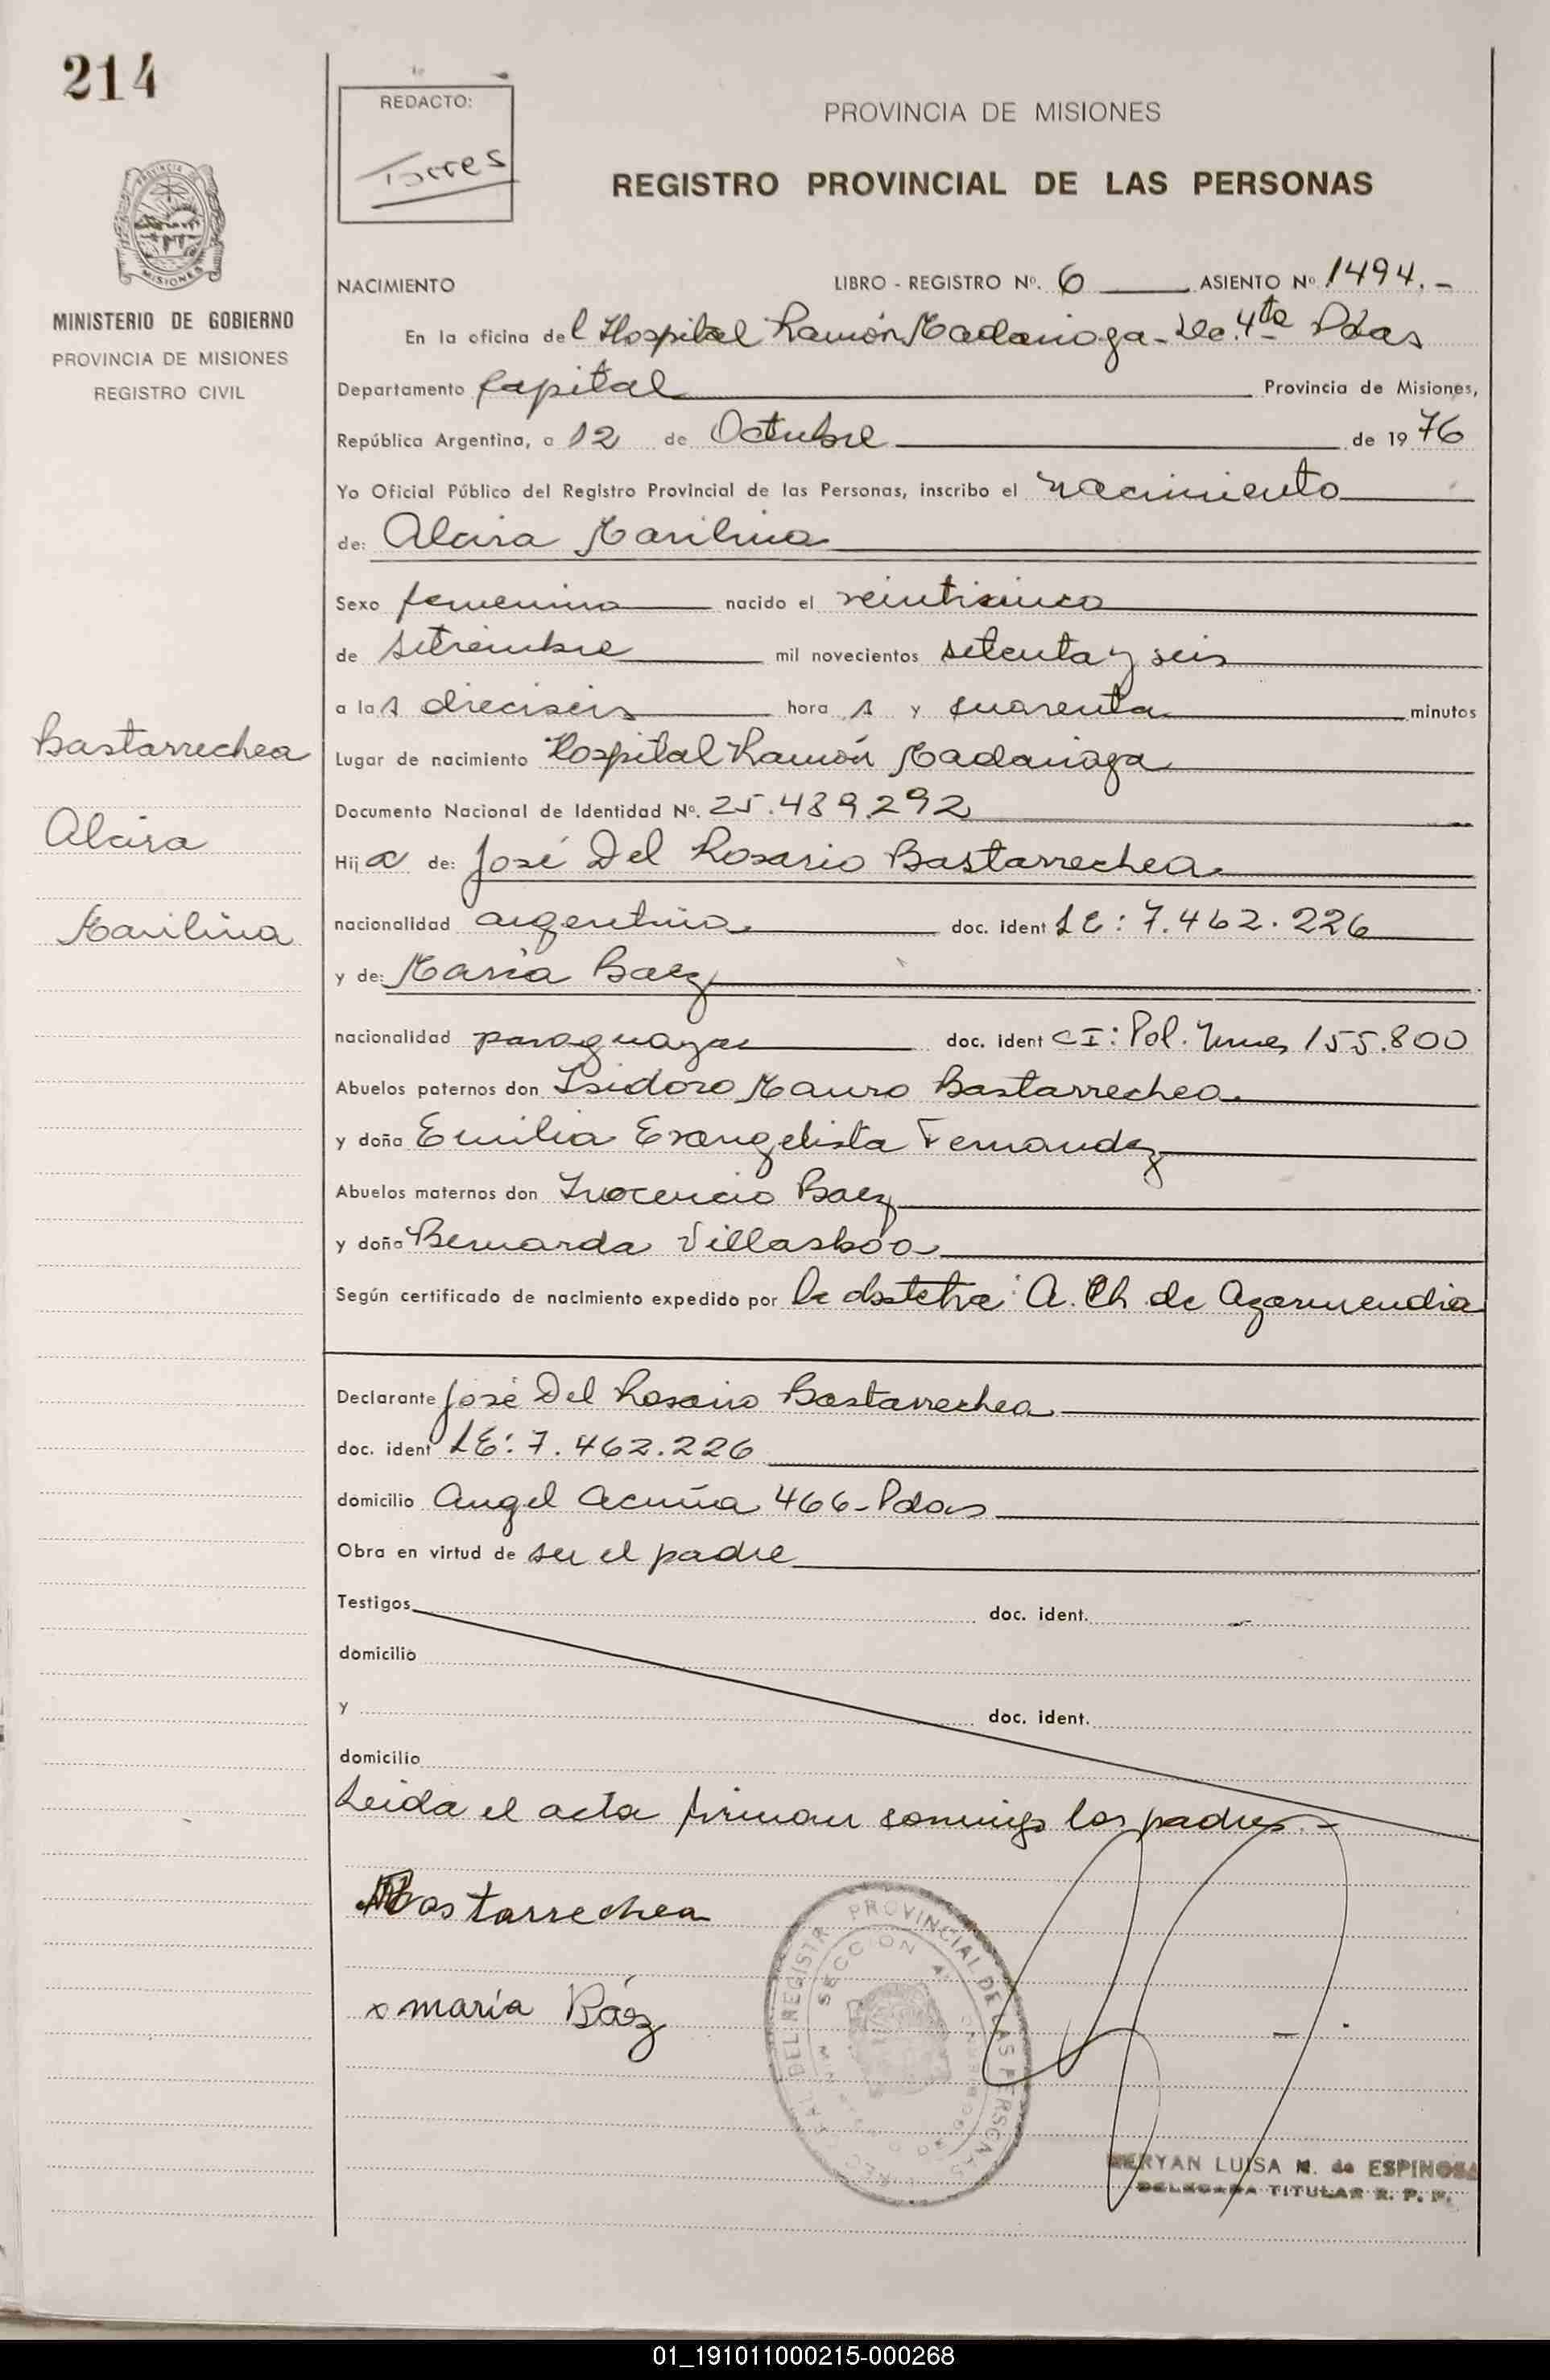 214
REDACTO:
Torres
PROVINCIA DE MISIONES
REGISTRO PROVINCIAL DE LAS PERSONAS
PROVINCIA DE
MISIONES
MINISTERIO DE GOBIERNO
PROVINCIA DE MISIONES
REGISTRO CIVIL
NACIMIENTO LIBRO - REGISTRO Nº. 6 ASIENTO Nº 1494.-
En la oficina del Hospital Ramón Madariaga - Sec. 4ta Pdas
Departamento Capital Provincia de Misiones,
República Argentina, a 12 de Octubre de 1976
Yo Oficial Público del Registro Provincial de las Personas, inscribo el nacimiento
de: Alcira Marilina
Sexo femenino nacido el veinticinco
de setiembre mil novecientos setenta y seis
a las dieciseis hora s y cuarenta minutos
Bastarrechea
Alcira
Marilina
Lugar de nacimiento Hospital Ramón Madariaga
Documento Nacional de Identidad Nº. 25.489.292
Hija de: José Del Rosario Bastarrechea
nacionalidad argentina doc. ident LE: 7.462.226
y de: María Baez
nacionalidad paraguaya doc. ident CI: Pol. Mnes 155.800
Abuelos paternos don Isidoro Mauro Bastarrechea
y doña Emilia Evangelista Fernandez
Abuelos maternos don Inocencio Baez
y doña Bernarda Villasboa
Según certificado de nacimiento expedido por la obstetra: A. Ch de Azarmendia
Declarante José Del Rosario Bastarrechea
doc. ident LE: 7.462.226
domicilio Angel Acuña 466 - Pdas
Obra en virtud de ser el padre
Testigos doc. ident.
domicilio
y doc. ident.
domicilio
Leida el acta firman conmigo los padres.-
Bastarrechea
x maría Báez
PROVINCIAL DE LAS PERSONAS
SECCION 4ª
MERYAN LUISA M. de ESPINOSA
DELEGADA TITULAR R. P. P.
01_191011000215-000268